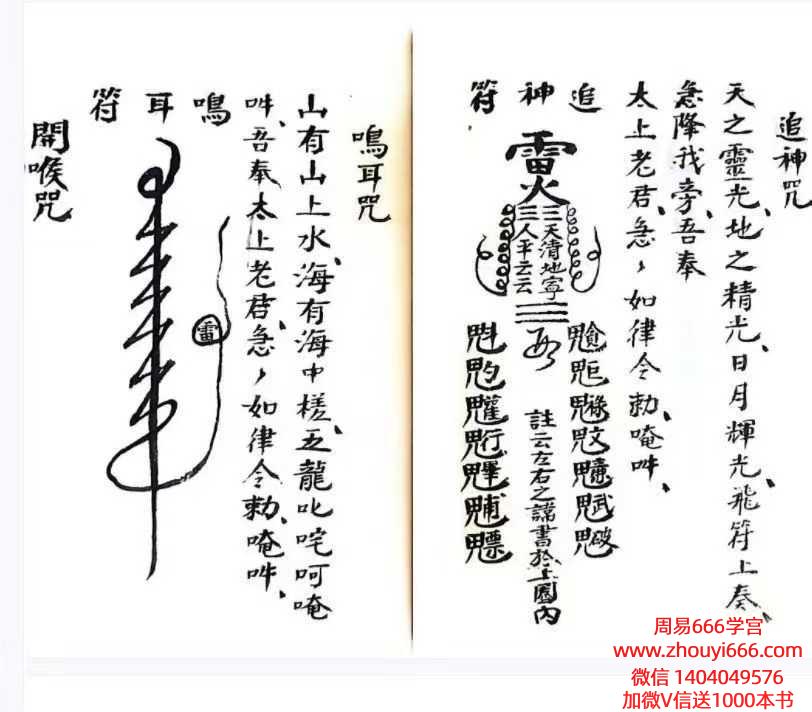 追神咒
天之靈光、地之精光、日月輝光、飛符上奏、
急降我旁、吾奉
太上老君、急々如律令勅、唵吽、
追神符
雷火
三三天清地寧
三三人平云云
註云左右之諱書於上圈內
鳴耳咒
山有山上水、海有海中槎、五龍叱咤呵唵
吽、吾奉太上老君、急々如律令勅、唵吽、
鳴耳符
雷
開喉咒
周易666学宫
www.zhouyi666.com
微信 1404049576
加微V信送1000本书